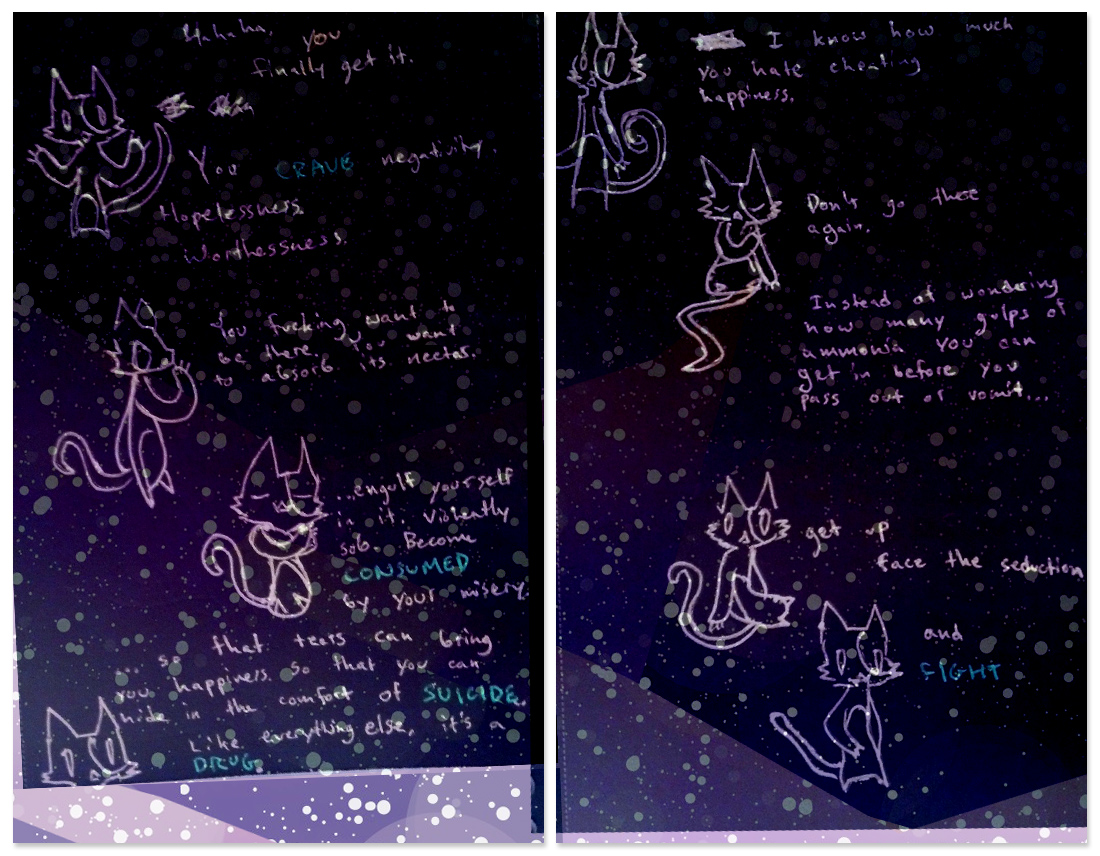 Hahaha, you
finally get it.
You CRAVE negativity.
Hopelessness.
Worthlessness.
You fucking want to
be there. You want
to absorb its nectar.
...engulf yourself
in it. Violently
sob. Become
CONSUMED
by your misery.
... so that tears can bring
you happiness. So that you can
hide in the comfort of SUICIDE.
Like everything else, it's a
DRUG.
I know how much
you hate cheating
happiness.
Don't go there
again.
Instead of wondering
how many gulps of
ammonia you can
get in before you
pass out or vomit...
get up
face the seduction
and
FIGHT